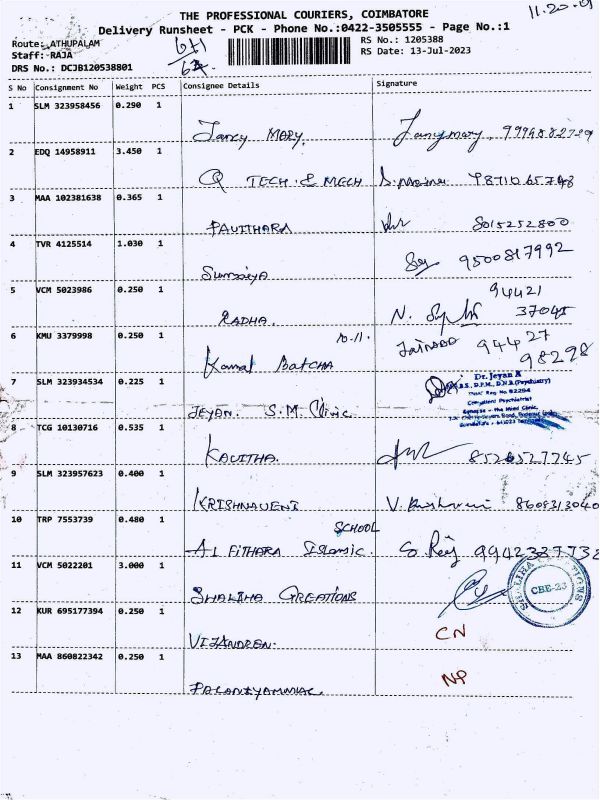 THE PROFESSIONAL COURIERS, COIMBATORE
11.20
Delivery Runsheet - PCK - Phone No.:0422-3505555 - Page No.:1
Route: ATHUPALAM
RS No.: 1205388
Staff: RAJA
RS Date: 13-Jul-2023
DRS No.: DCJB120538801
S No Consignment No Weight PCS Consignee Details Signature
1 SLM 323958456 0.290 1
Jancy MARY. Jancymary, 9994882729
2 EDQ 14958911 3.450 1
Q TECH. & MECH
3 MAA 102381638 0.365 1
PAVITHARA 8015252800
4 TVR 4125514 1.030 1
Sumaiya 9500817992
5 VCM 5023986 0.250 1
94421
RADHA. N. 37045
6 KMU 3379998 0.250 1
10.11.
Kamal Batcha 94427
98298
7 SLM 323934534 0.225 1
Dr. Jeyan A
JEYAN. S.M. Clinic
8 TCG 10130716 0.535 1
KAVITHA. 8526527745
9 SLM 323957623 0.400 1
KRISHNAVENI V. 8608313040
10 TRP 7553739 0.480 1
SCHOOL
AL FITHARA Islamic. 9942327732
11 VCM 5022201 3.000 1
SHALIHA CREATIONS
CBE-23
12 KUR 695177394 0.250 1
VIJANDREN. CN
13 MAA 860822342 0.250 1
NP